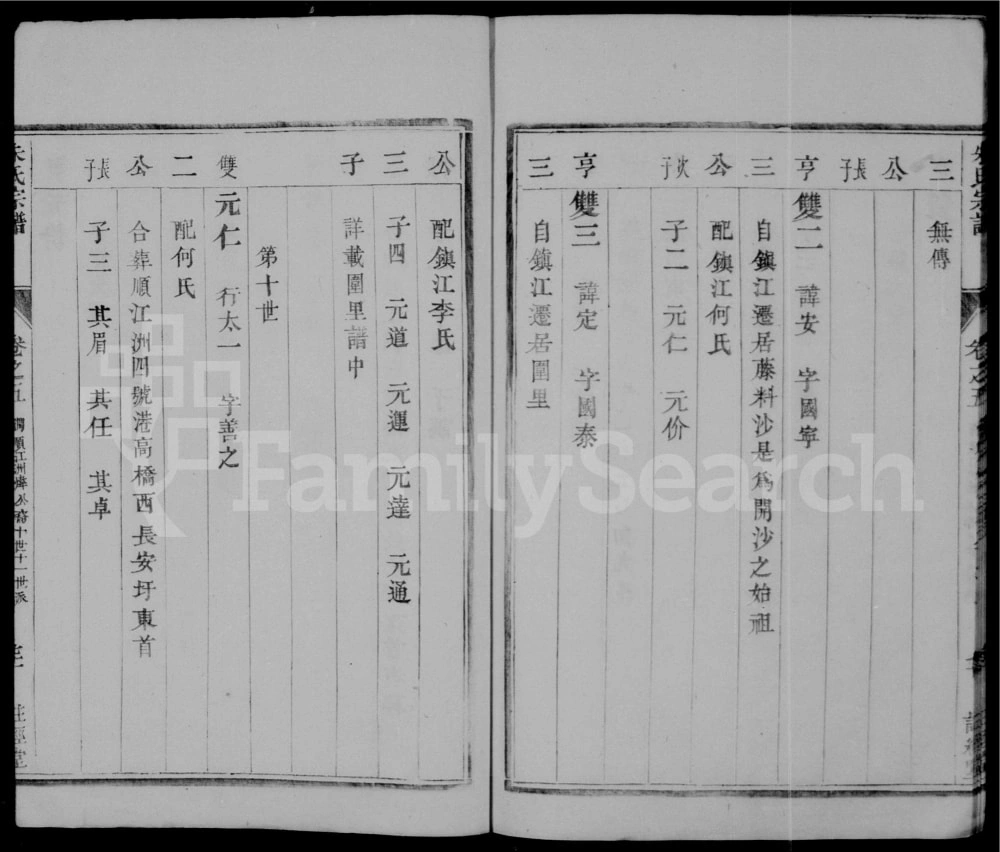 三 無傳
公
張子
亨 雙二 諱安 字國寧
三 自鎮江遷居藤料沙是爲開沙之始祖
公 配鎮江何氏
次子 子二 元仁 元价
亨 雙三 諱定 字國泰
三 自鎮江遷居圍里
公 配鎮江李氏
三 子四 元道 元運 元達 元通
子 詳載圍里譜中
第十世
雙 元仁 行太一 字善之
二 配何氏
公 合葬順江洲四號港高橋西長安圩東首
長子 子三 其眉 其任 其卓
朱氏宗譜 卷之五
FamilySearch